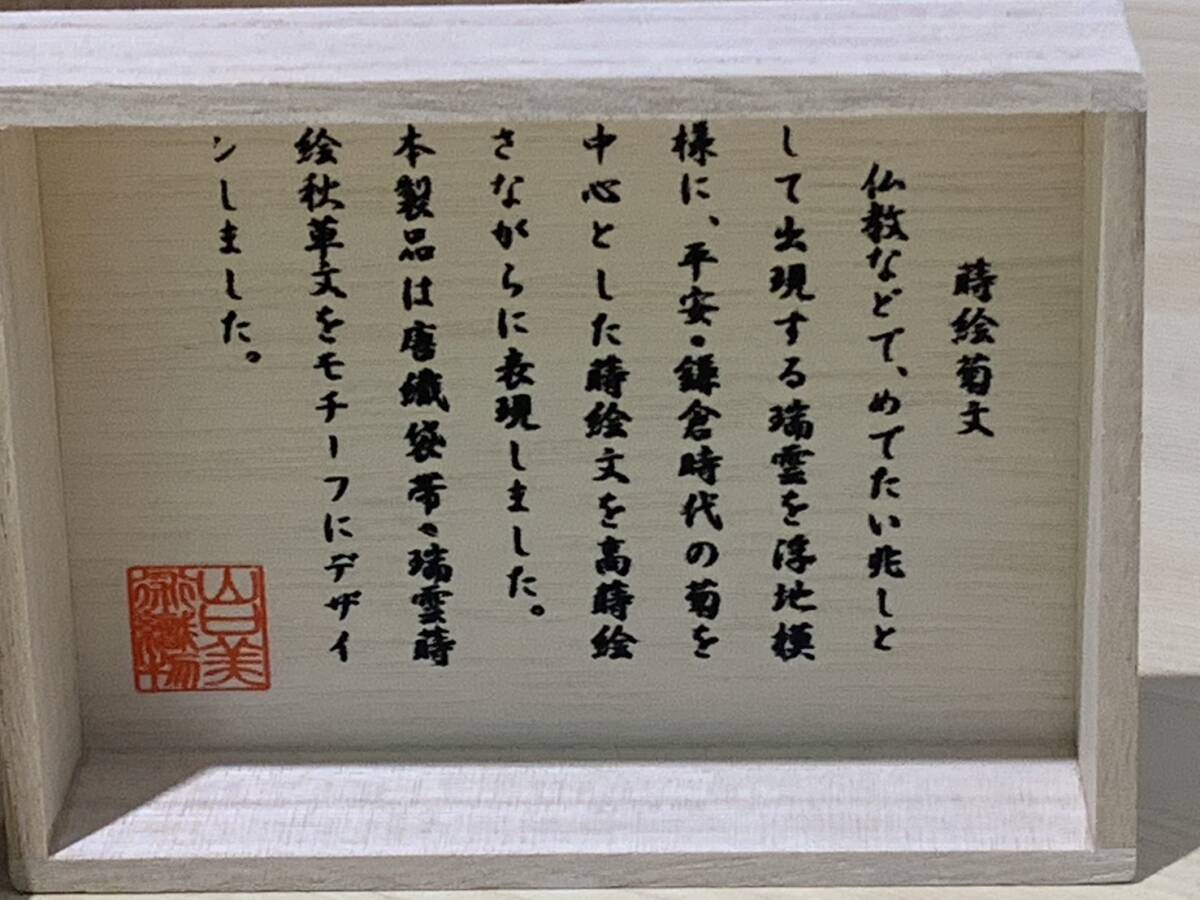 蒔絵菊文
仏教などで、めでたい兆しと
して出現する瑞雲を浮地模
様に、平安・鎌倉時代の菊を
中心とした蒔絵文を高蒔絵
さながらに表現しました。
本製品は唐織袋帯・瑞雲蒔
絵秋草文をモチーフにデザイ
ンしました。